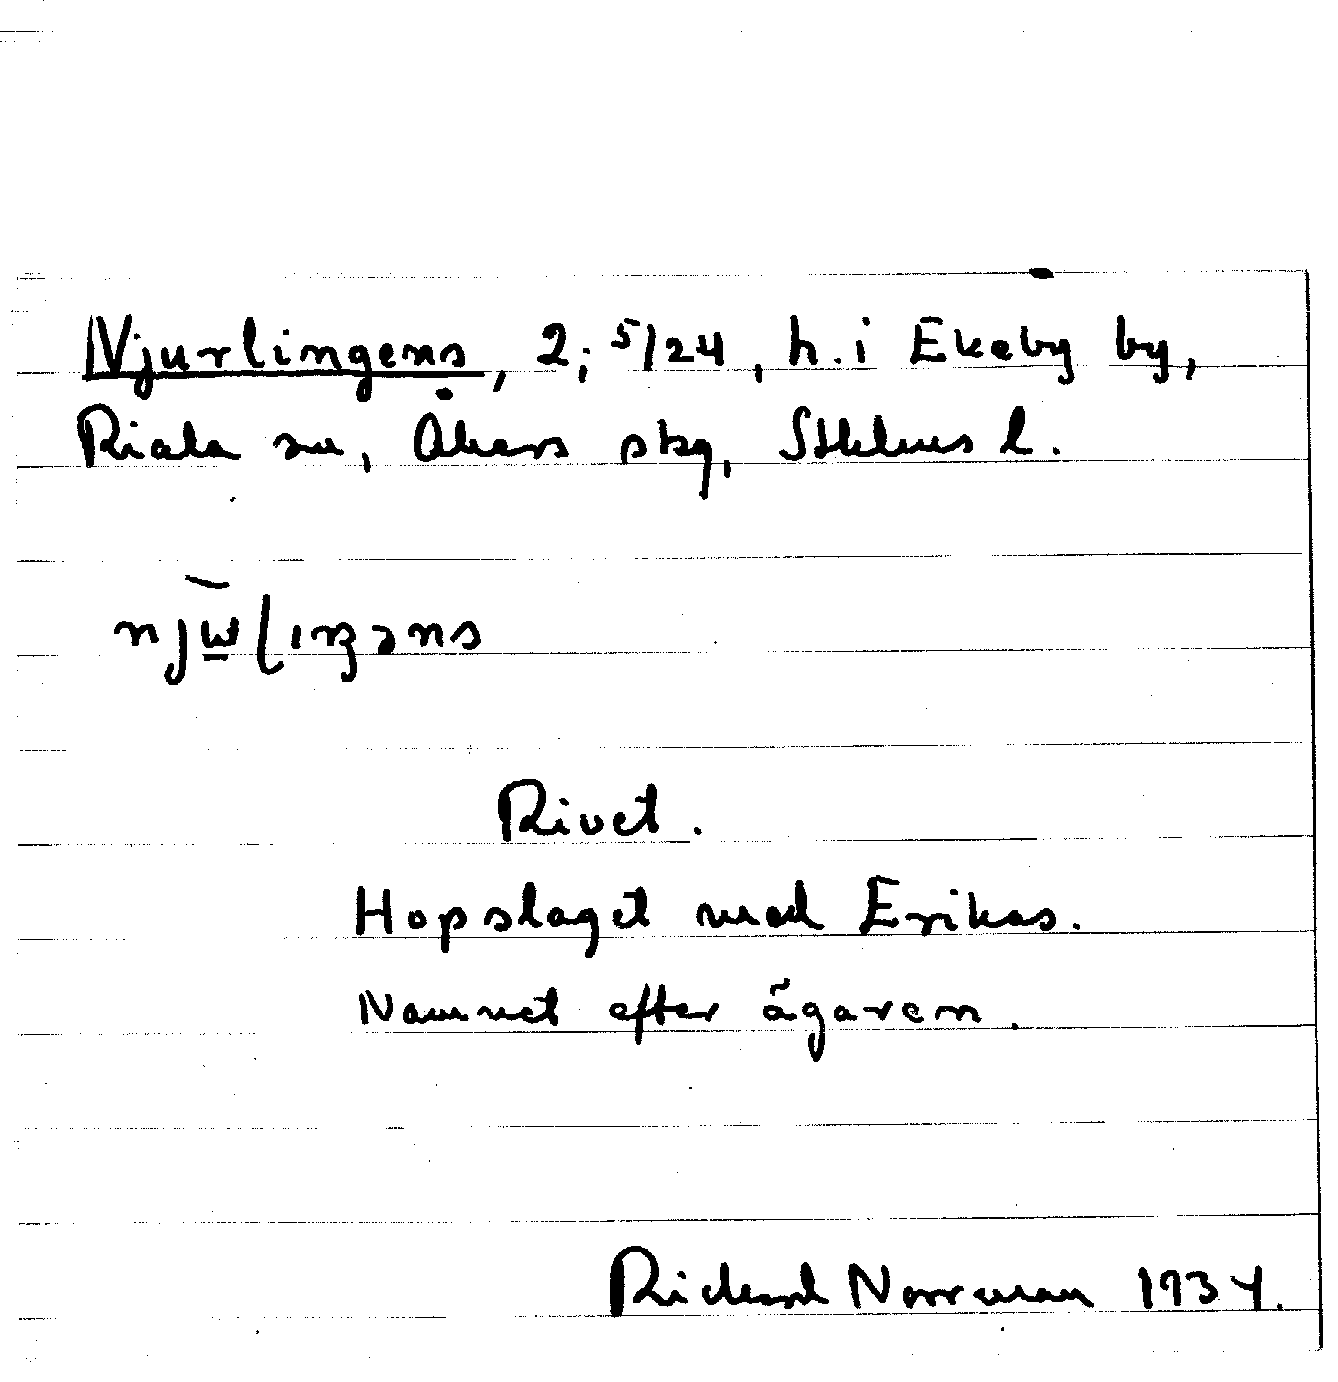 Njurlingens, 2; 5/24, h. i Ekeby by,
Riala sn, Åkers skg, Sthlms l.
Rivet.
Hopslaget med Erikas.
Namnet efter ägaren.
Rickard Norrman 1934.